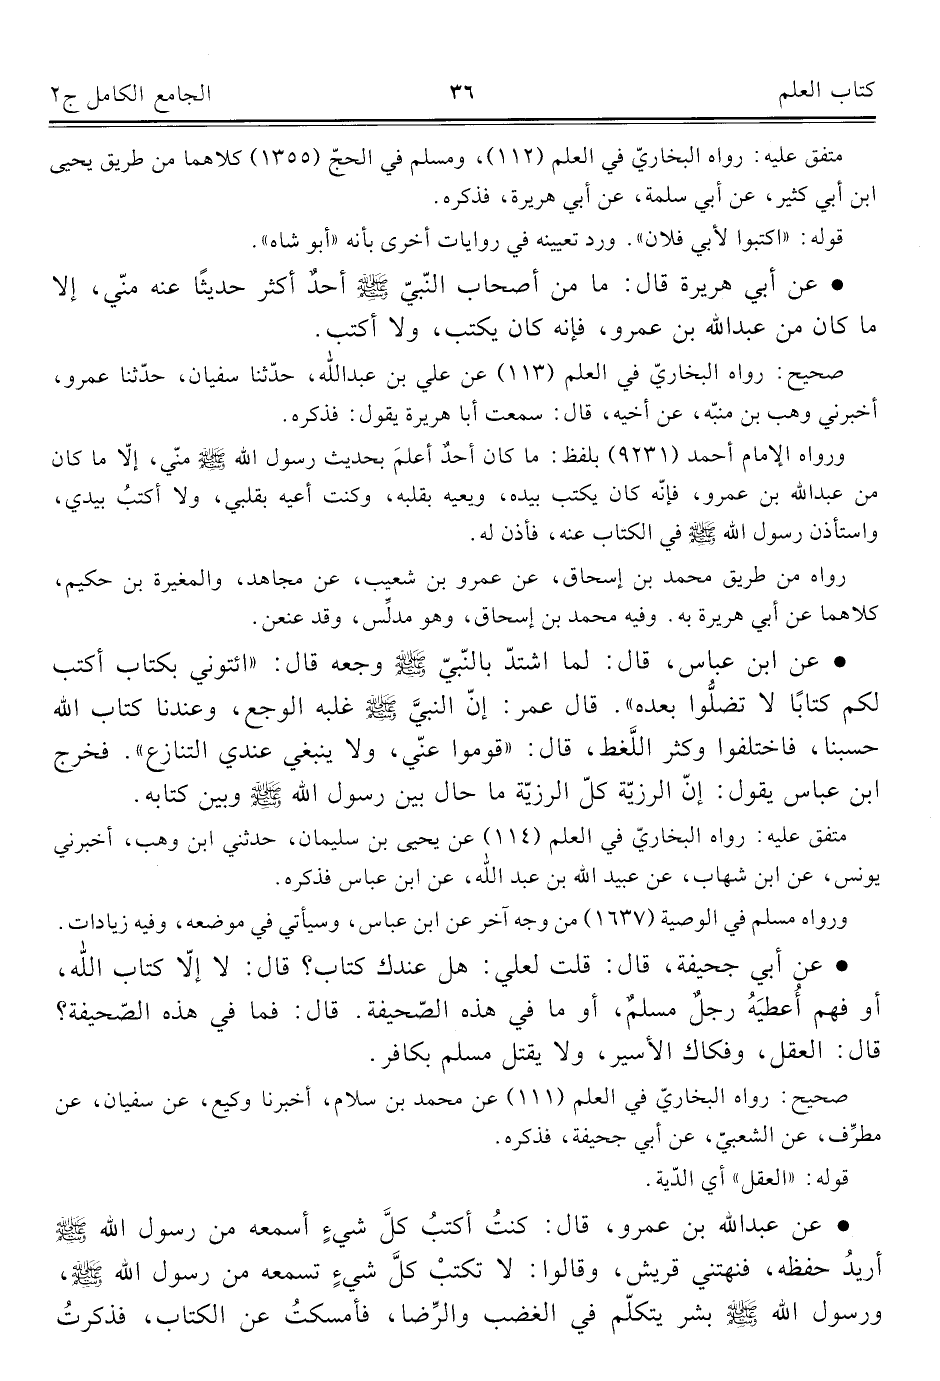 كتاب العلم ٣٦ الجامع الكامل ج٢
متفق عليه: رواه البخاريّ في العلم (١١٢)، ومسلم في الحجّ (١٣٥٥) كلاهما من طريق يحيى
ابن أبي كثير، عن أبي سلمة، عن أبي هريرة، فذكره.
قوله: «اكتبوا لأبي فلان». ورد تعيينه في روايات أخرى بأنه «أبو شاه».
● عن أبي هريرة قال: ما من أصحاب النّبيّ ﷺ أحدٌ أكثر حديثًا عنه منّي، إلا
ما كان من عبدالله بن عمرو، فإنه كان يكتب، ولا أكتب.
صحيح: رواه البخاريّ في العلم (١١٣) عن علي بن عبدالله، حدّثنا سفيان، حدّثنا عمرو،
أخبرني وهب بن منبّه، عن أخيه، قال: سمعت أبا هريرة يقول: فذكره.
ورواه الإمام أحمد (٩٢٣١) بلفظ: ما كان أحدٌ أعلمَ بحديث رسول الله ﷺ منّي، إلّا ما كان
من عبدالله بن عمرو، فإنّه كان يكتب بيده، ويعيه بقلبه، وكنت أعيه بقلبي، ولا أكتبُ بيدي،
واستأذن رسول الله ﷺ في الكتاب عنه، فأذن له.
رواه من طريق محمد بن إسحاق، عن عمرو بن شعيب، عن مجاهد، والمغيرة بن حكيم،
كلاهما عن أبي هريرة به. وفيه محمد بن إسحاق، وهو مدلِّس، وقد عنعن.
● عن ابن عباس، قال: لما اشتدّ بالنّبيّ ﷺ وجعه قال: «ائتوني بكتاب أكتب
لكم كتابًا لا تضلُّوا بعده». قال عمر: إنّ النبيَّ ﷺ غلبه الوجع، وعندنا كتاب الله
حسبنا، فاختلفوا وكثر اللَّغط، قال: «قوموا عنّي، ولا ينبغي عندي التنازع». فخرج
ابن عباس يقول: إنّ الرزيّة كلّ الرزيّة ما حال بين رسول الله ﷺ وبين كتابه.
متفق عليه: رواه البخاريّ في العلم (١١٤) عن يحيى بن سليمان، حدثني ابن وهب، أخبرني
يونس، عن ابن شهاب، عن عبيد الله بن عبد الله، عن ابن عباس فذكره.
ورواه مسلم في الوصية (١٦٣٧) من وجه آخر عن ابن عباس، وسيأتي في موضعه، وفيه زيادات.
● عن أبي جحيفة، قال: قلت لعلي: هل عندك كتاب؟ قال: لا إلّا كتاب الله،
أو فهم أُعطيَهُ رجلٌ مسلمٌ، أو ما في هذه الصّحيفة. قال: فما في هذه الصّحيفة؟
قال: العقل، وفكاك الأسير، ولا يقتل مسلم بكافر.
صحيح: رواه البخاريّ في العلم (١١١) عن محمد بن سلام، أخبرنا وكيع، عن سفيان، عن
مطرِّف، عن الشعبيّ، عن أبي جحيفة، فذكره.
قوله: «العقل» أي الدّية.
● عن عبدالله بن عمرو، قال: كنتُ أكتبُ كلَّ شيءٍ أسمعه من رسول الله ﷺ
أريدُ حفظه، فنهتني قريش، وقالوا: لا تكتبْ كلَّ شيءٍ تسمعه من رسول الله ﷺ،
ورسول الله ﷺ بشر يتكلّم في الغضب والرِّضا، فأمسكتُ عن الكتاب، فذكرتُ